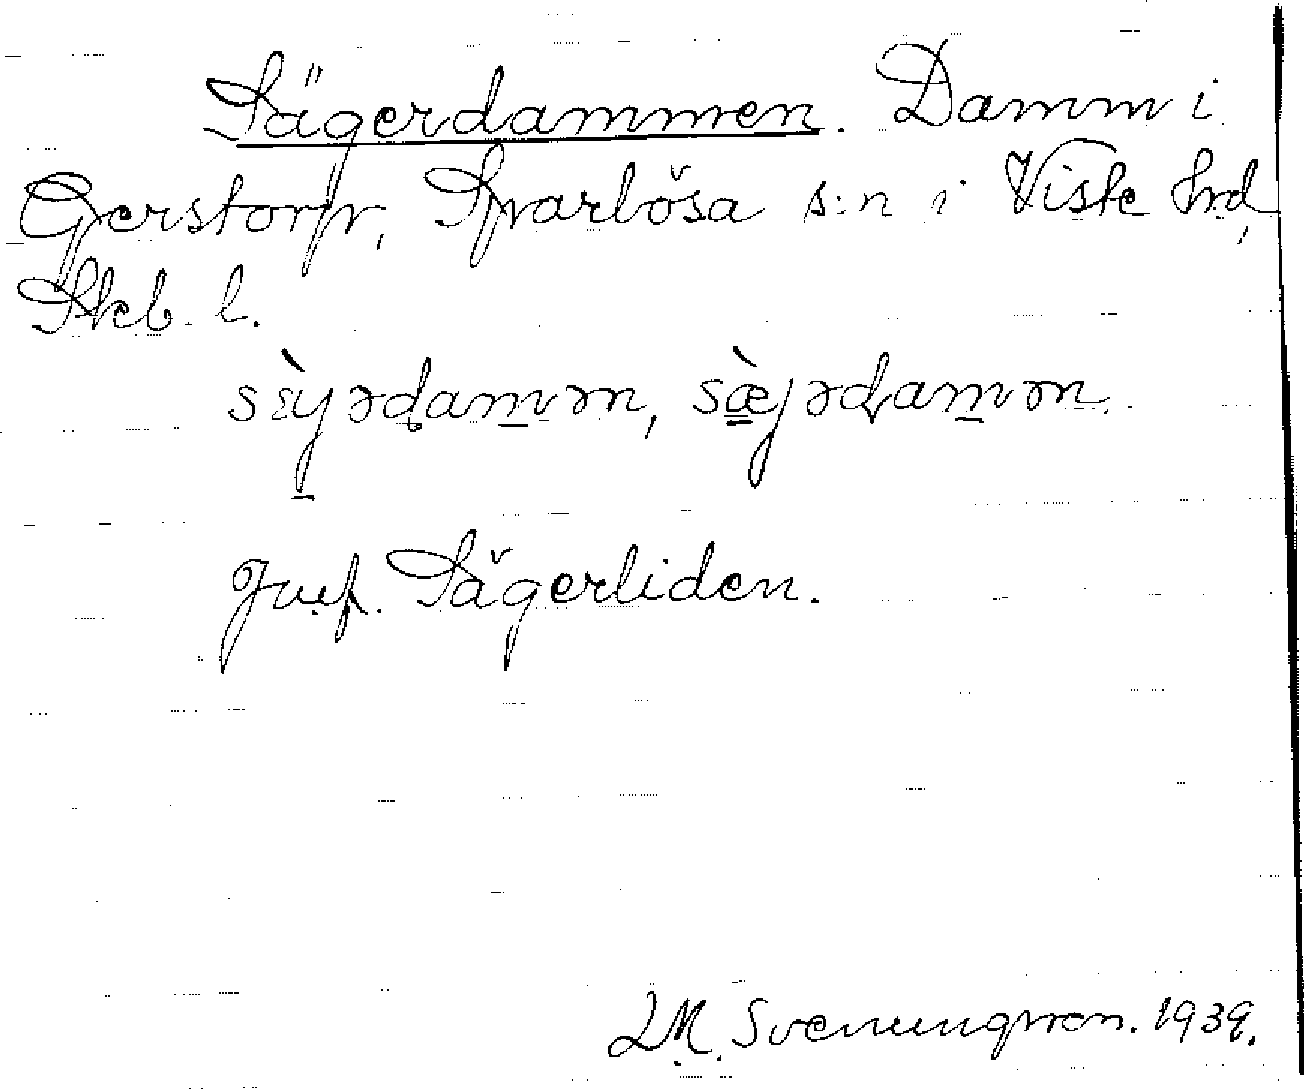 Sägerdammen. Damm i
Gerstorp, Sparlösa s:n i Viste hrd,
Skb. l.
sὲyərdamən, sæ̀jərdamən.
Jmf. Sägerliden.
LM. Svenungsson. 1939.